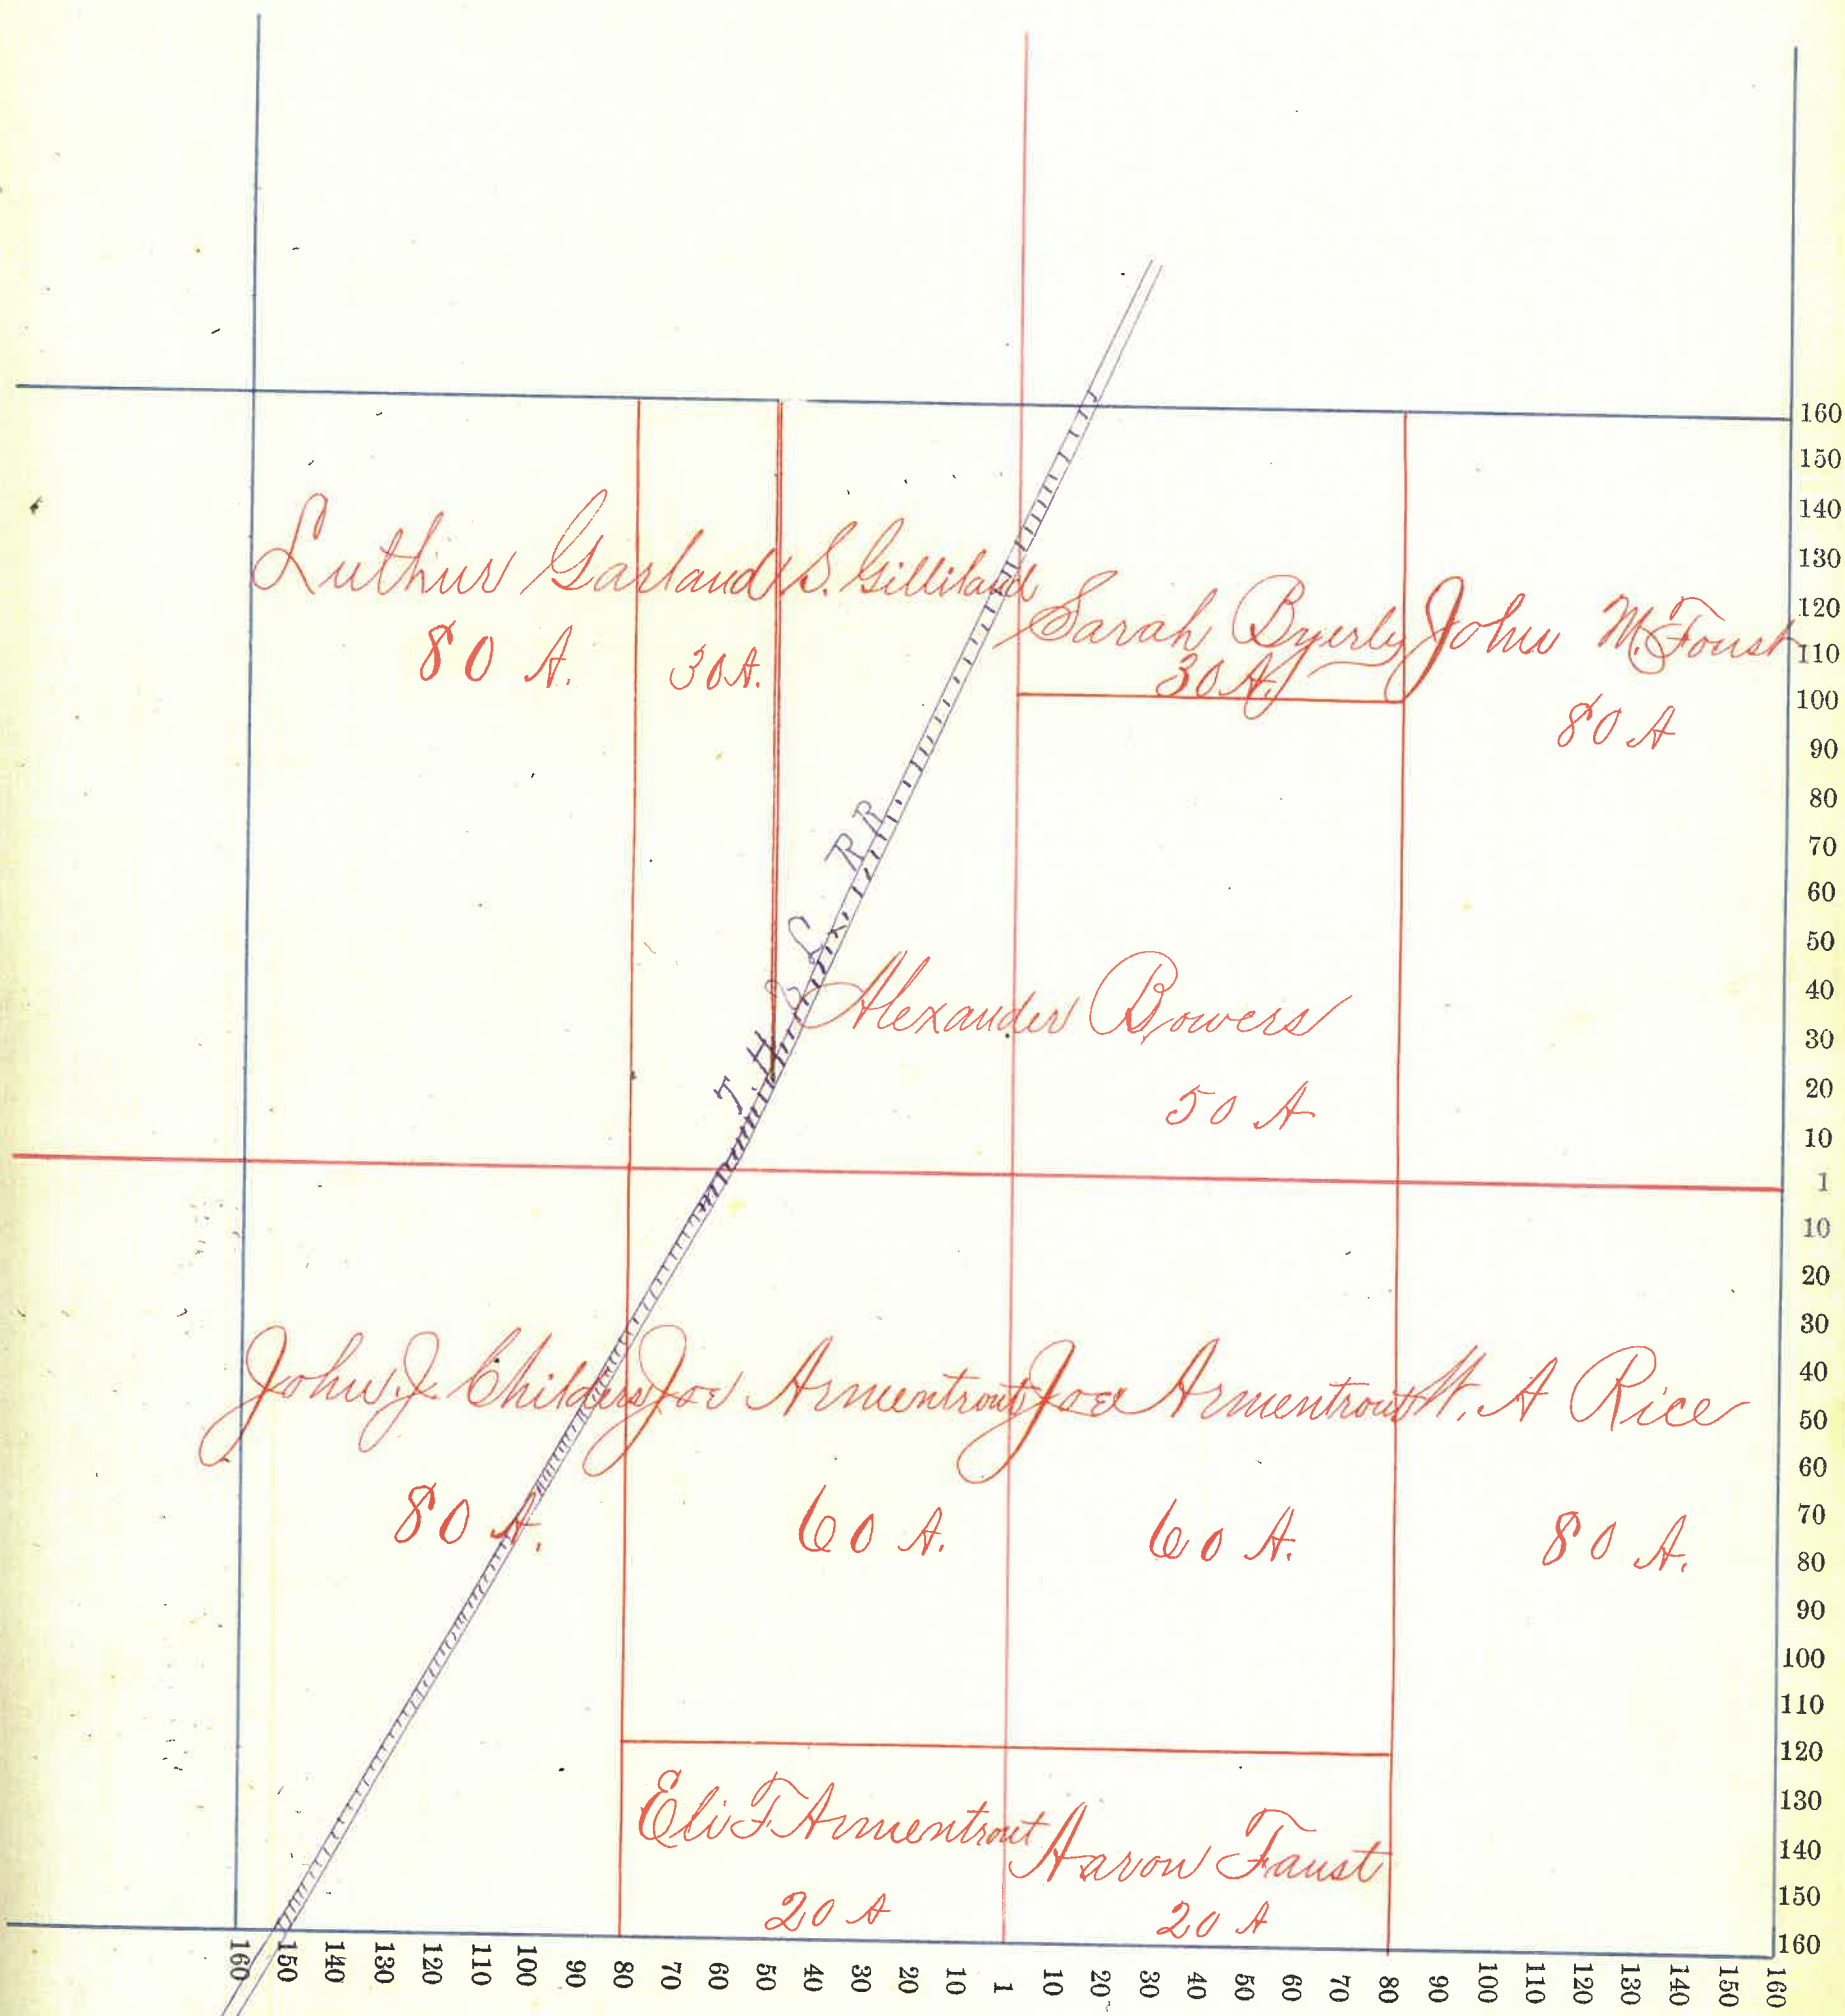 Luthur Garland
80 A.
30 A.
S. Gilliland
Sarah Byerly
30 A.
John M. Foust
80 A
T. H. & L. RR
Alexander Bowers
50 A
John J. Childers
80 A.
Joe Armentrout
60 A.
Joe Armentrout
60 A.
W. A Rice
80 A.
Eli F Armentrout
20 A
Aaron Faust
20 A
160
150
140
130
120
110
100
90
80
70
60
50
40
30
20
10
1
10
20
30
40
50
60
70
80
90
100
110
120
130
140
150
160
160 150 140 130 120 110 100 90 80 70 60 50 40 30 20 10 1 10 20 30 40 50 60 70 80 90 100 110 120 130 140 150 160